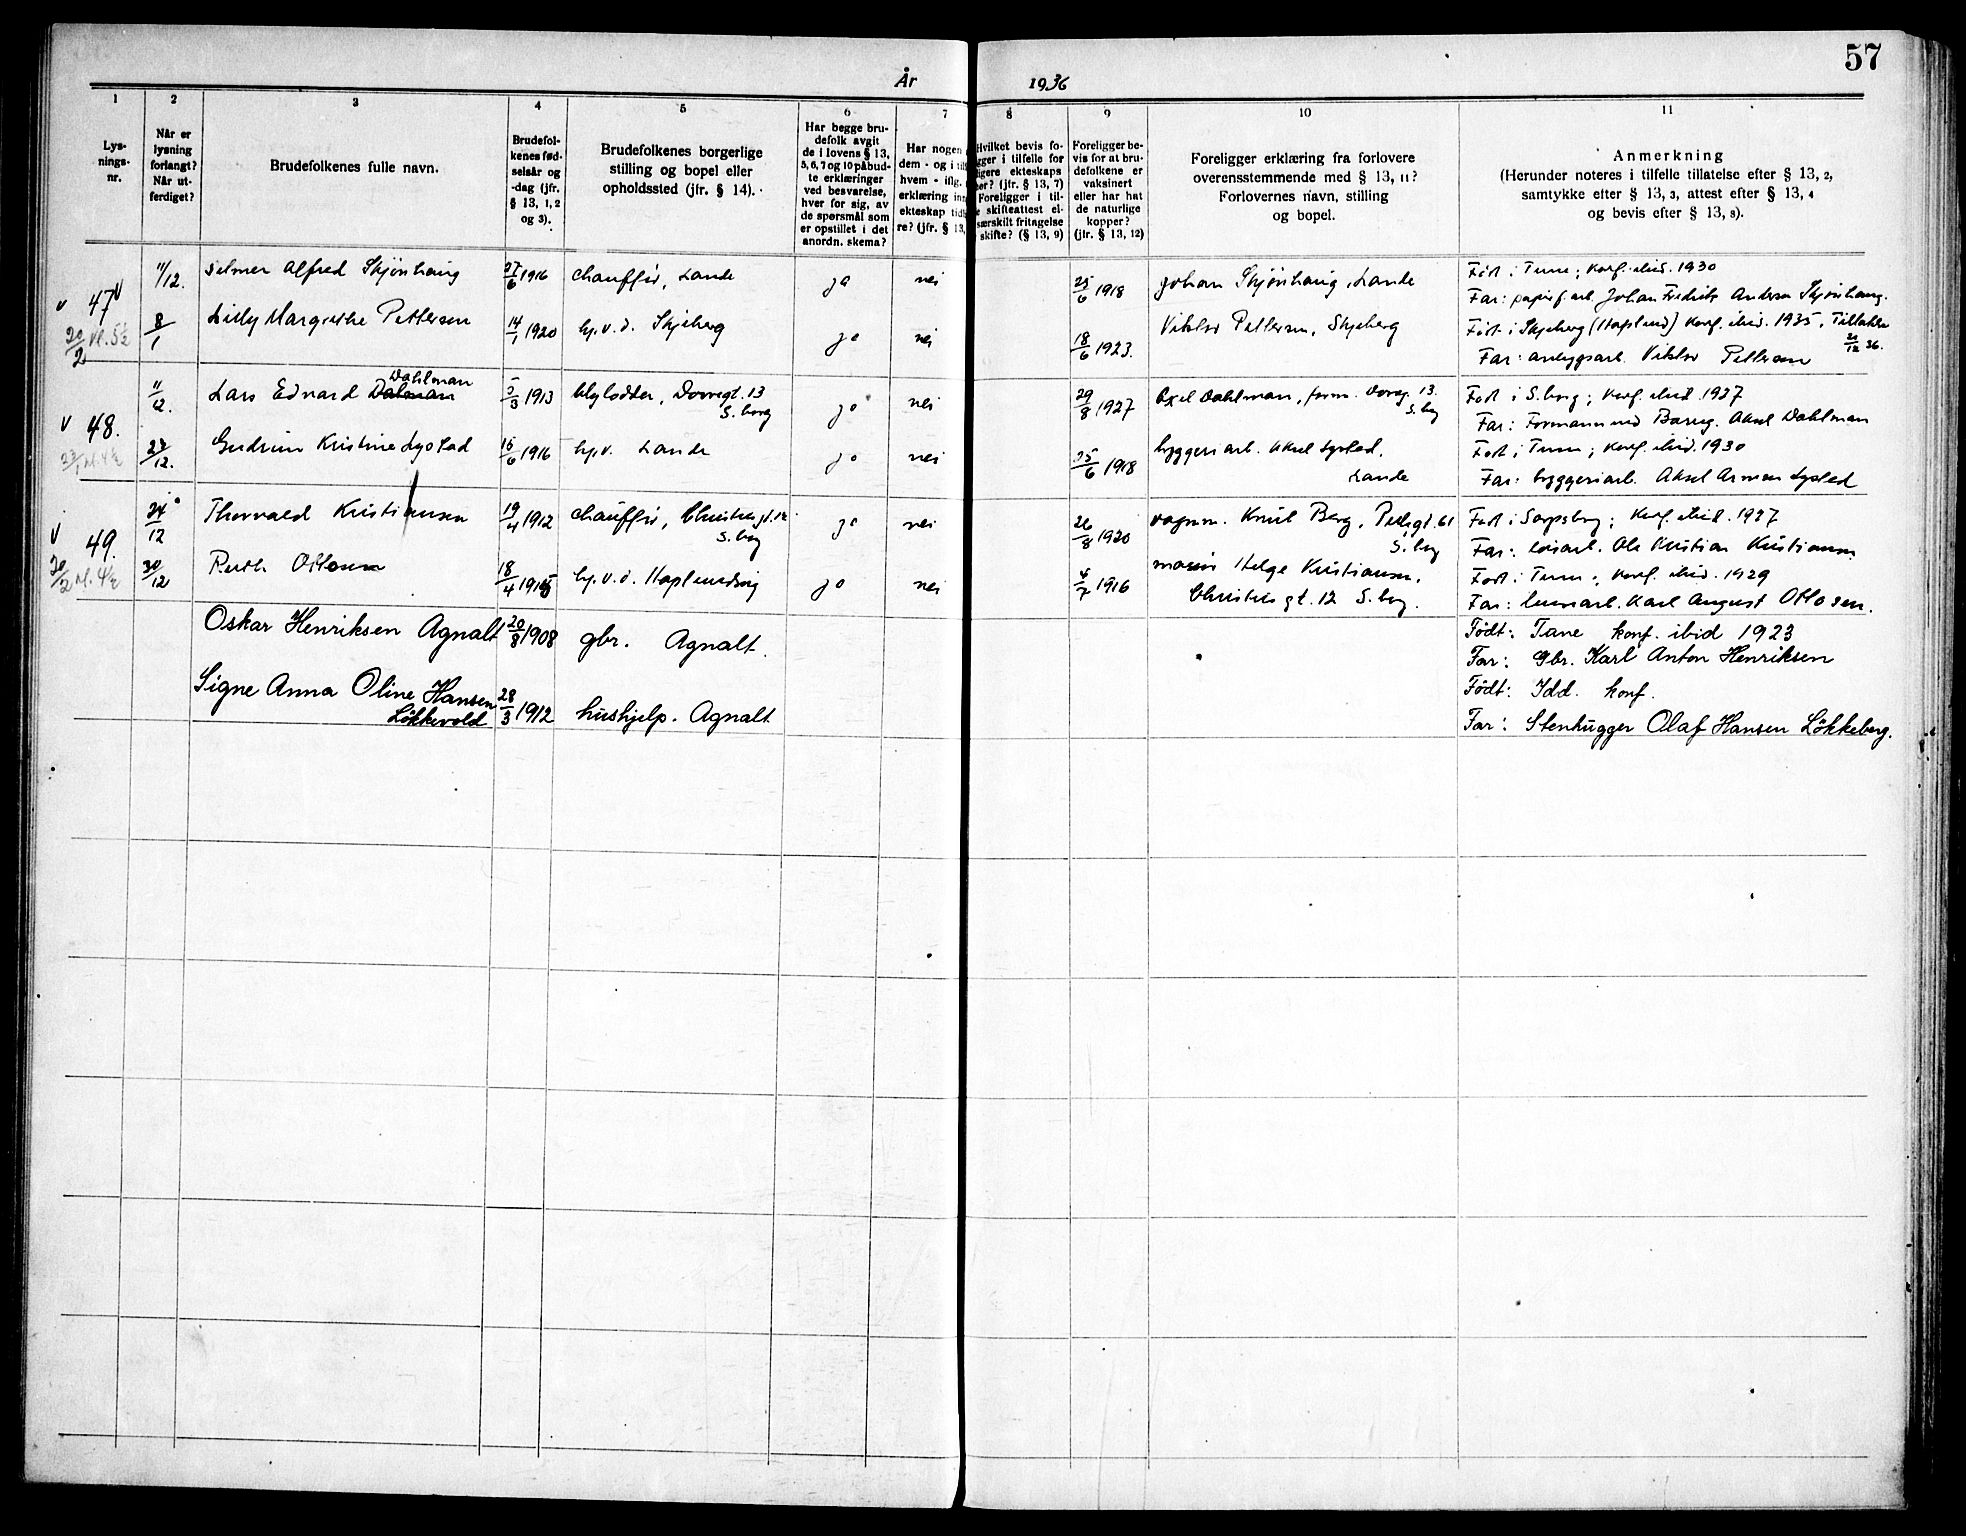 57
År 1936
1 2 3 4 5 6 7 8 9 10 11
Lys-
nings-
nr.
Når er
lysning
forlangt?
Når ut-
ferdiget?
Brudefolkenes fulle navn.
Brudefol-
kenes fød-
selsår og
-dag (jfr.
§ 13, 1, 2
og 3).
Brudefolkenes borgerlige
stilling og bopel eller
opholdssted (jfr. § 14).
Har begge bru-
defolk avgit
de i lovens § 13,
5, 6, 7 og 10 påbud-
te erklæringer
ved besvarelse,
hver for sig, av
de spørsmål som
er opstillet i det
anordn. skema?
Har nogen
dem - og i til
hvem - iflg.
erklæring inn
ekteskap tid
re? (jfr. § 13,
Hvilket bevis fo-
gger i tilfelle for
ligere ekteskaps
er? (jfr. § 13, 7)
Foreligger i til-
e skifteattest el-
særskilt fritagelse
skifte? (§ 13, 9)
Foreligger be-
vis for at bru-
defolkene er
vaksinert
eller har hat
de naturlige
kopper?
(jfr. § 13, 12)
Foreligger erklæring fra forlovere
overensstemmende med § 13, 11?
Forlovernes navn, stilling
og bopel.
Anmerkning
(Herunder noteres i tilfelle tillatelse efter § 13, 2,
samtykke efter § 13, 3, attest efter § 13, 4
og bevis efter § 13, 8).
v 47 v
20/2 kl. 5½
11/12. Selmer Alfred Skjønhaug 27/6 1916 chauffør, Lande ja nei 25/6 1918 Johan Skjønhaug, Lande Født i Tune; konf. ibid. 1930
Far: papirf.arb. Johan Fredrik Anders Skjønhaug.
8/1 Lilly Margrethe Pettersen 14/1 1920 hj.v.d. Skjeberg ja nei 18/6 1923. Viktor Pettersen, Skjeberg Født i Skjeberg (Hafslund) konf. ibid. 1935. Tillatelse 21/12 36.
Far: anleggsarb. Viktor Pettersen
v 48.
11/12. Lars Edvard Dahlman 5/3 1913 Dovregt. 13
S.borg ja nei 29/8 1927 Axel Dahlman, form. Dovreg. 13.
S.bg Født i S.borg; konf. ibid. 1927
Far: Formann ved Borreg. Aksel Dahlman
23/12. Gudrun Kristine Lystad 15/6 1916 hj.v. Lande ja nei 25/6 1918 byggeriarb. Aksel Lystad,
Lande Født i Tune; konf. ibid. 1930
Far: byggeriarb. Aksel Lystad
v 49.
20/2 kl. 4½
24/12 Thorvald Kristiansen 19/4 1912 chauffør, gt. 12
S.borg ja nei 26/8 1920 Knut Berg, 61
S.bg Født i Sarpsborg; konf. ibid. 1927
Far: løsarb. Ole Kristian Kristiansen
30/12 Ruth Ottosen 18/4 1915 hj.v.d. Hafslundsøy ja nei 4/7 1916 Helge Kristiansen,
gt. 12 S.borg. Født i Tune; konf. ibid. 1929
Far: Karl August Ottosen.
Oskar Henriksen Agnalt 20/8 1908 gbr. Agnalt. Født: Tune konf. ibid 1923
Far: Gbr. Karl Anton Henriksen
Signe Anna Oline Hansen
Løkkevold 28/3 1912 hushjelp. Agnalt Født: Idd. konf.
Far: Stenhugger Olaf Hansen Løkkeberg.